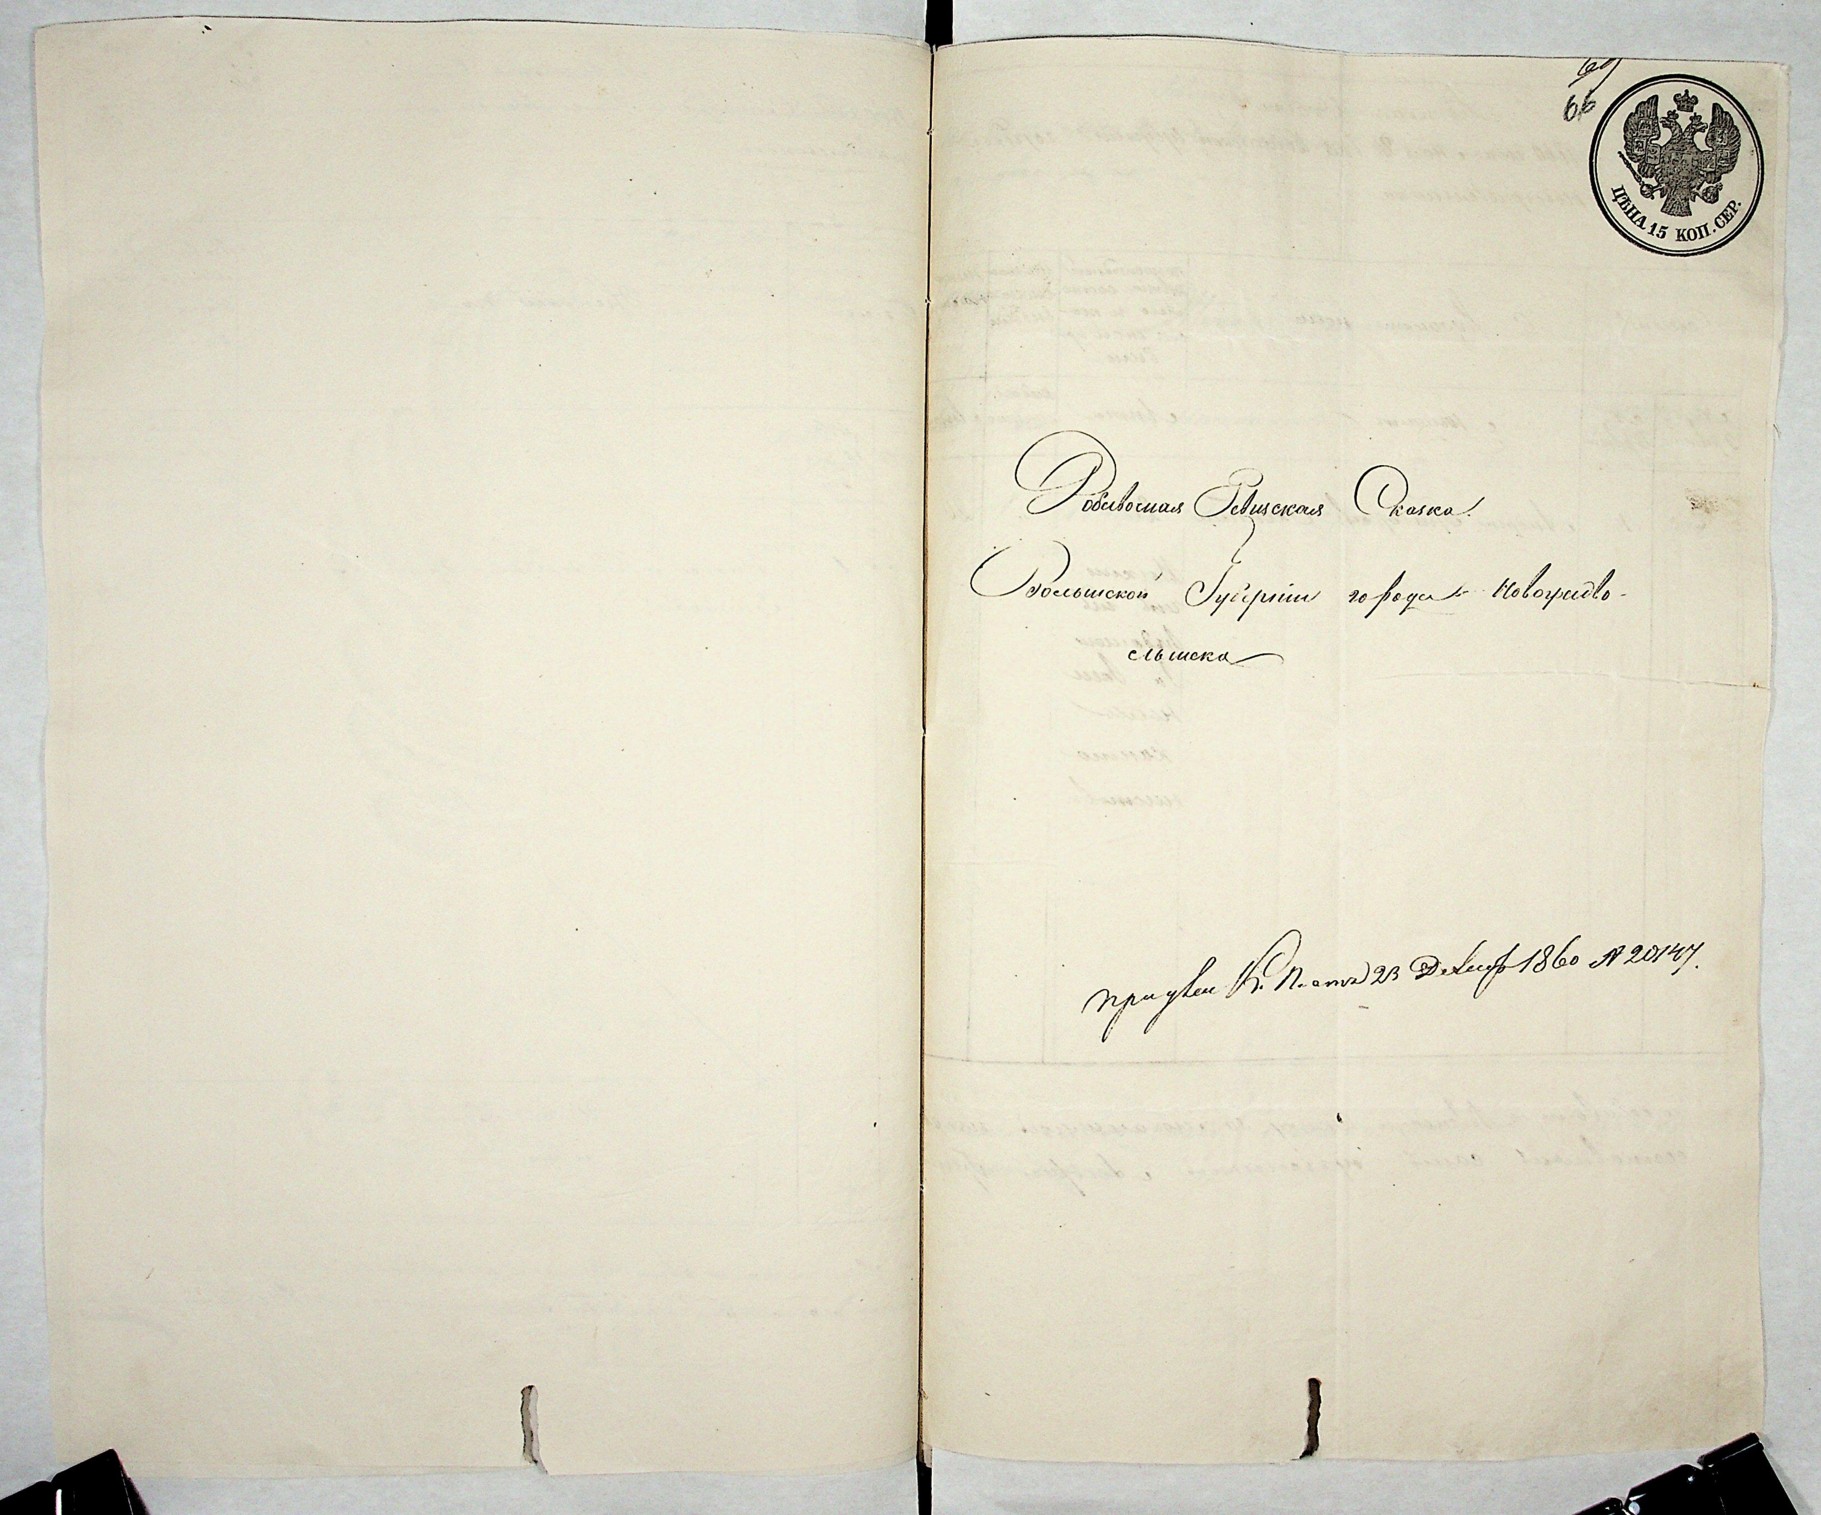 66
ЦѢНА 15 КОП. СЕР.
Добавочная Ревизская Сказка.
Волынской Губерніи города Новоградво-
лынска
при указѣ К. Палаты 23 Декабр 1860 № 20147.